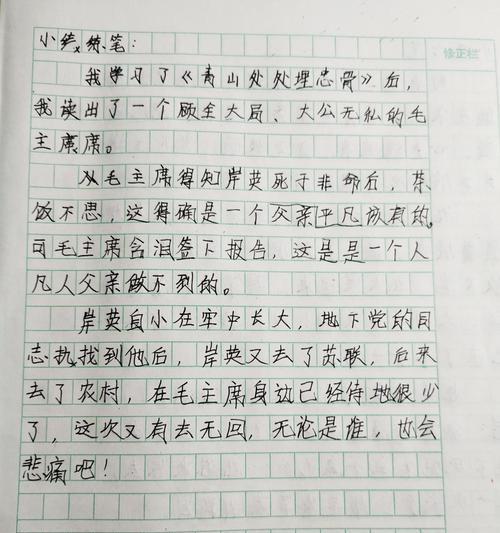 小练练笔：
修正栏
我学习了《青山处处埋忠骨》后，
我读出了一个顾全大局、大公无私的毛
主席。
从毛主席得知岸英死于非命后，茶
饭不思，这得确是一个父亲平凡该有的。
可毛主席含泪签下报告，这是是一个人
凡人父亲做不到的。
岸英自小在牢中长大，地下党的同
志找到他后，岸英又去了苏联，后来
去了农村，在毛主席身边已经待地很少
了，这次又有去无回，无论是谁，也会
悲痛吧！